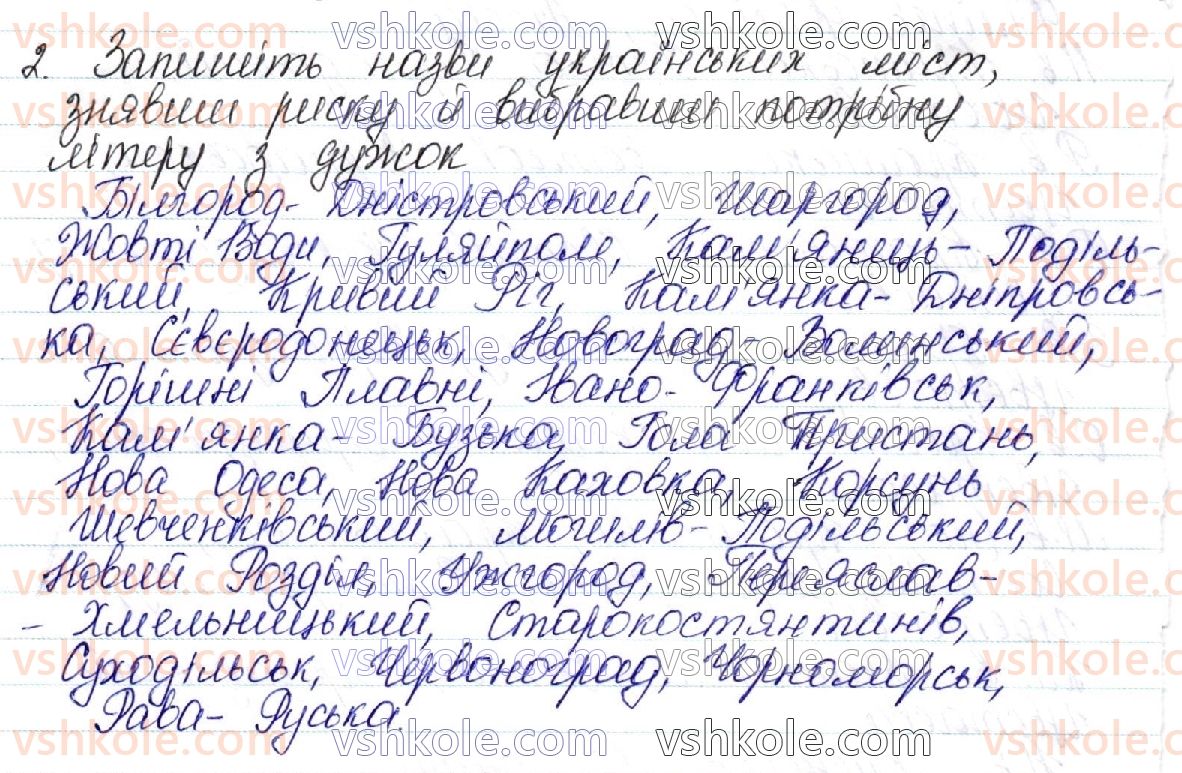 2. Запишіть назви українських міст,
знявши риску й вибравши потрібну
літеру з дужок
Білгород- Дністровський, Шаргород,
Жовті Води, Гуляйполе, Кам'янець - Поділь-
ський, Кривий Ріг, Кам'янка- Дніпровсь-
ка, Сєвєродонецьк, Новоград- Волинський,
Горішні Плавні, Івано- Франківськ,
Кам'янка- Бузька, Гола Пристань,
Нова Одеса, Нова Каховка, Корсунь
Шевченківський, Могилів- Подільський,
Новий Розділ, Ужгород, Переяслав-
- Хмельницький, Старокостянтинів,
Суходільськ, Червоноград, Чорноморськ,
Рава- Руська.